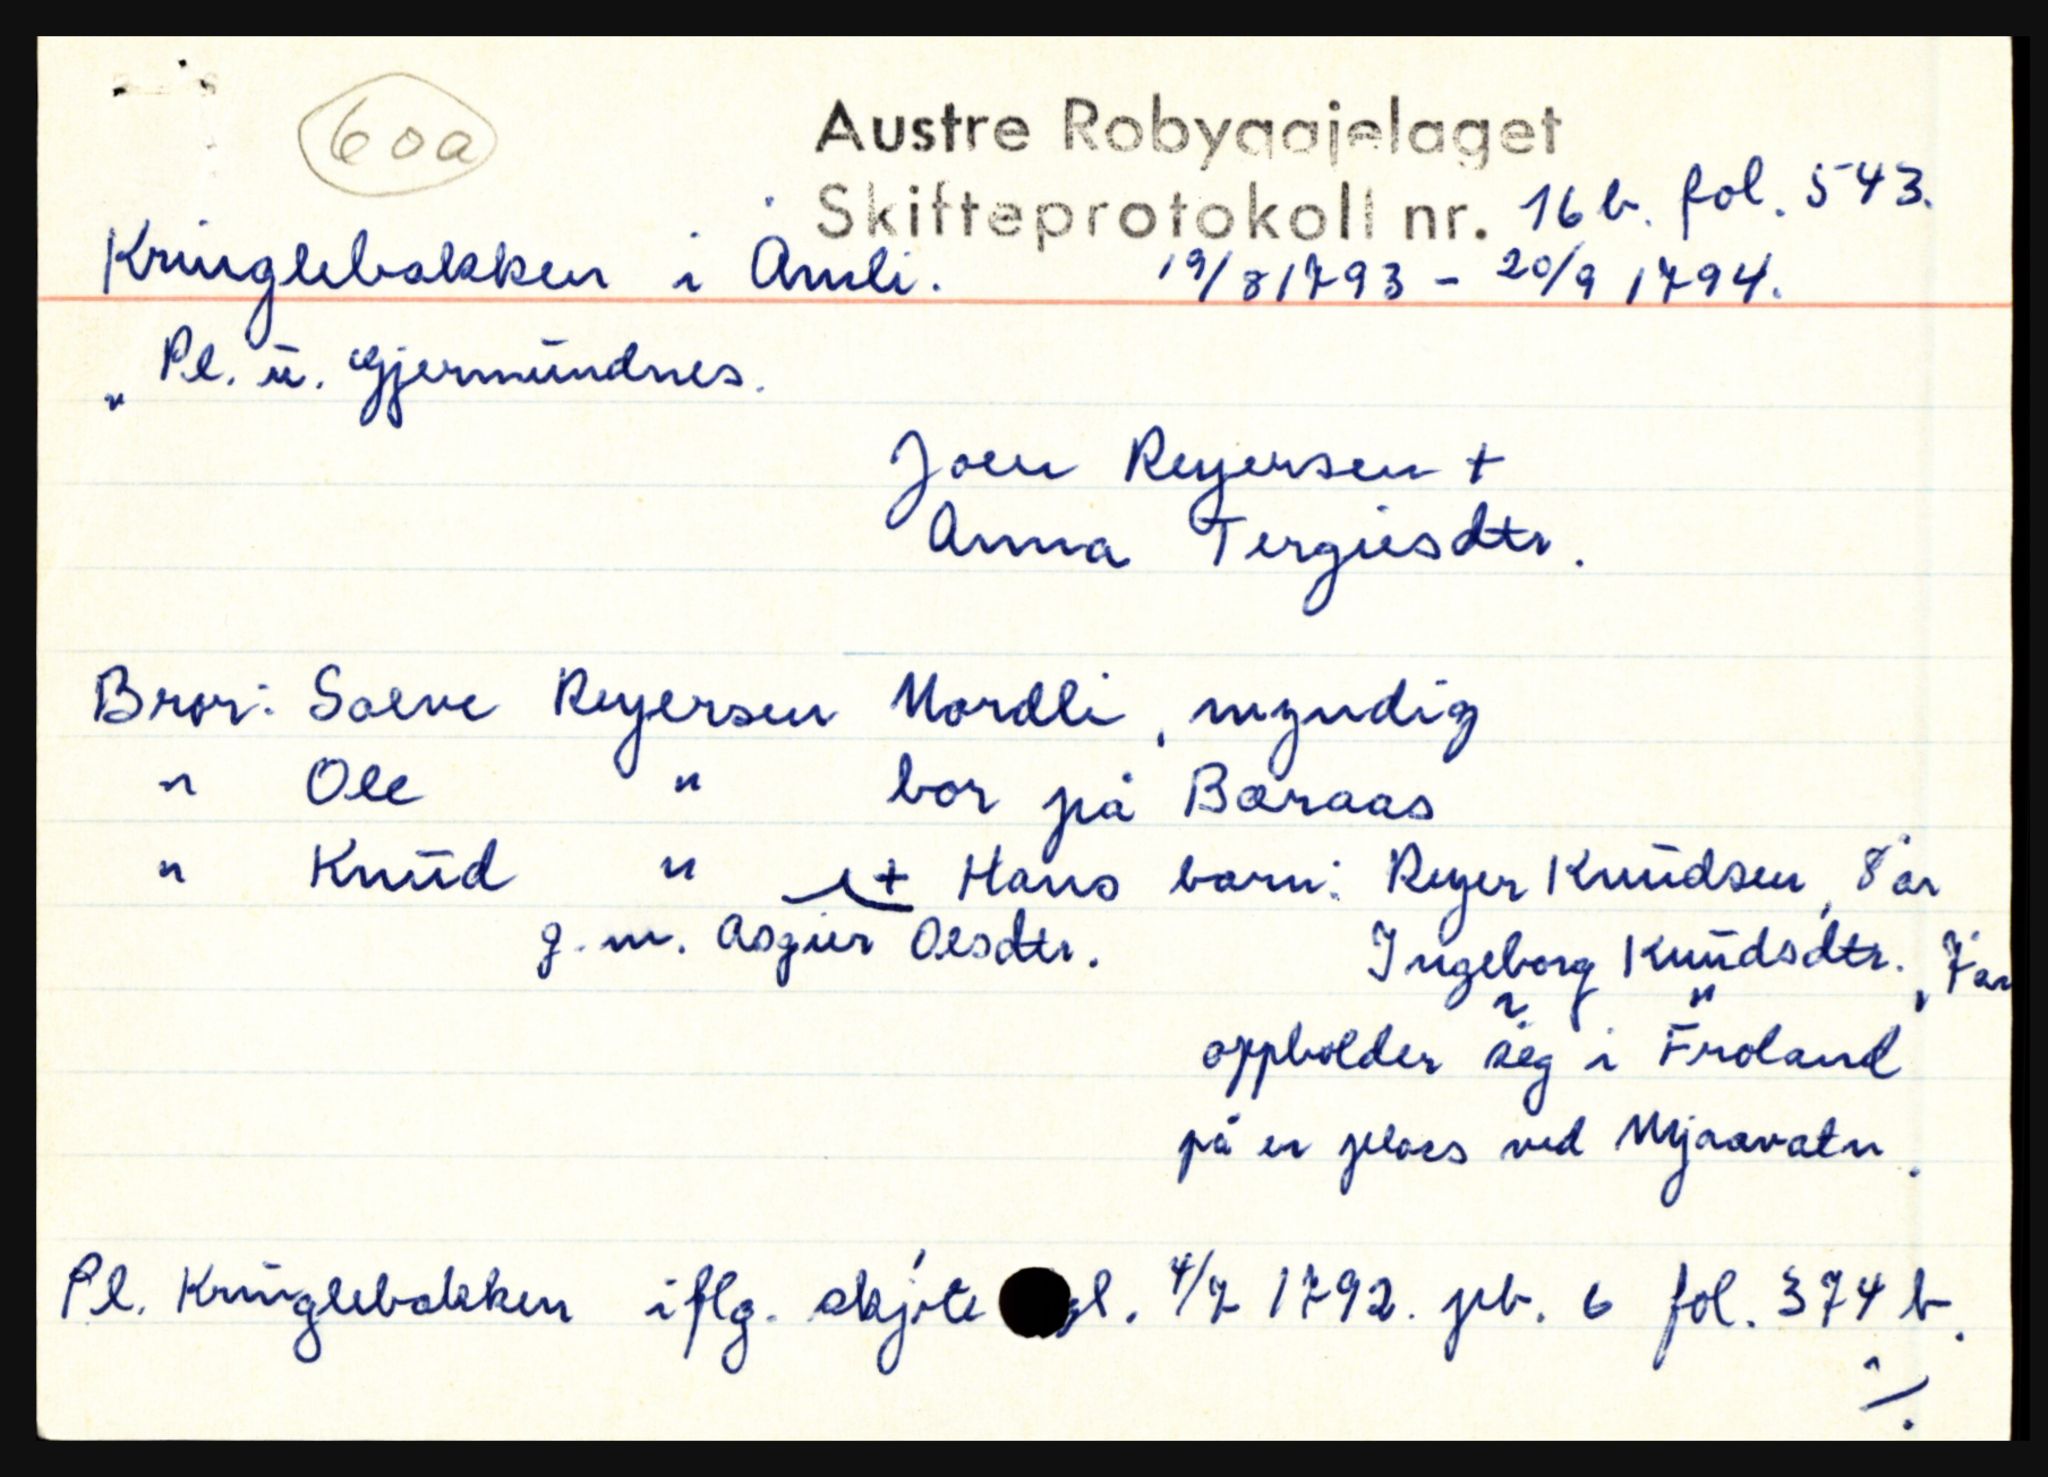 60a
Austre Robyggjelaget
Skifteprotokoll nr. 16 b. fol. 543.
Kringlebakken i Åmli. 19/8 1793 - 20/9 1794.
" Pl. u. Gjermundnes.
Joen Reyersen +
Anna Tergiesdtr.
Bror: Solve Reyersen Mordli, myndig
" Ole " bor på Baraas
" Knud " + Hans barn: Reyer Knudsen, 8 år
g.m. Asgier Olsdtr. Ingeborg Knudsdtr., 7 år
" "
oppholder seg i Froland
på en plass ved Mjaavatn.
Pl. Kringlebakken iflg. skjøte gl. 4/7 1792. pb. 6 fol. 374 b.